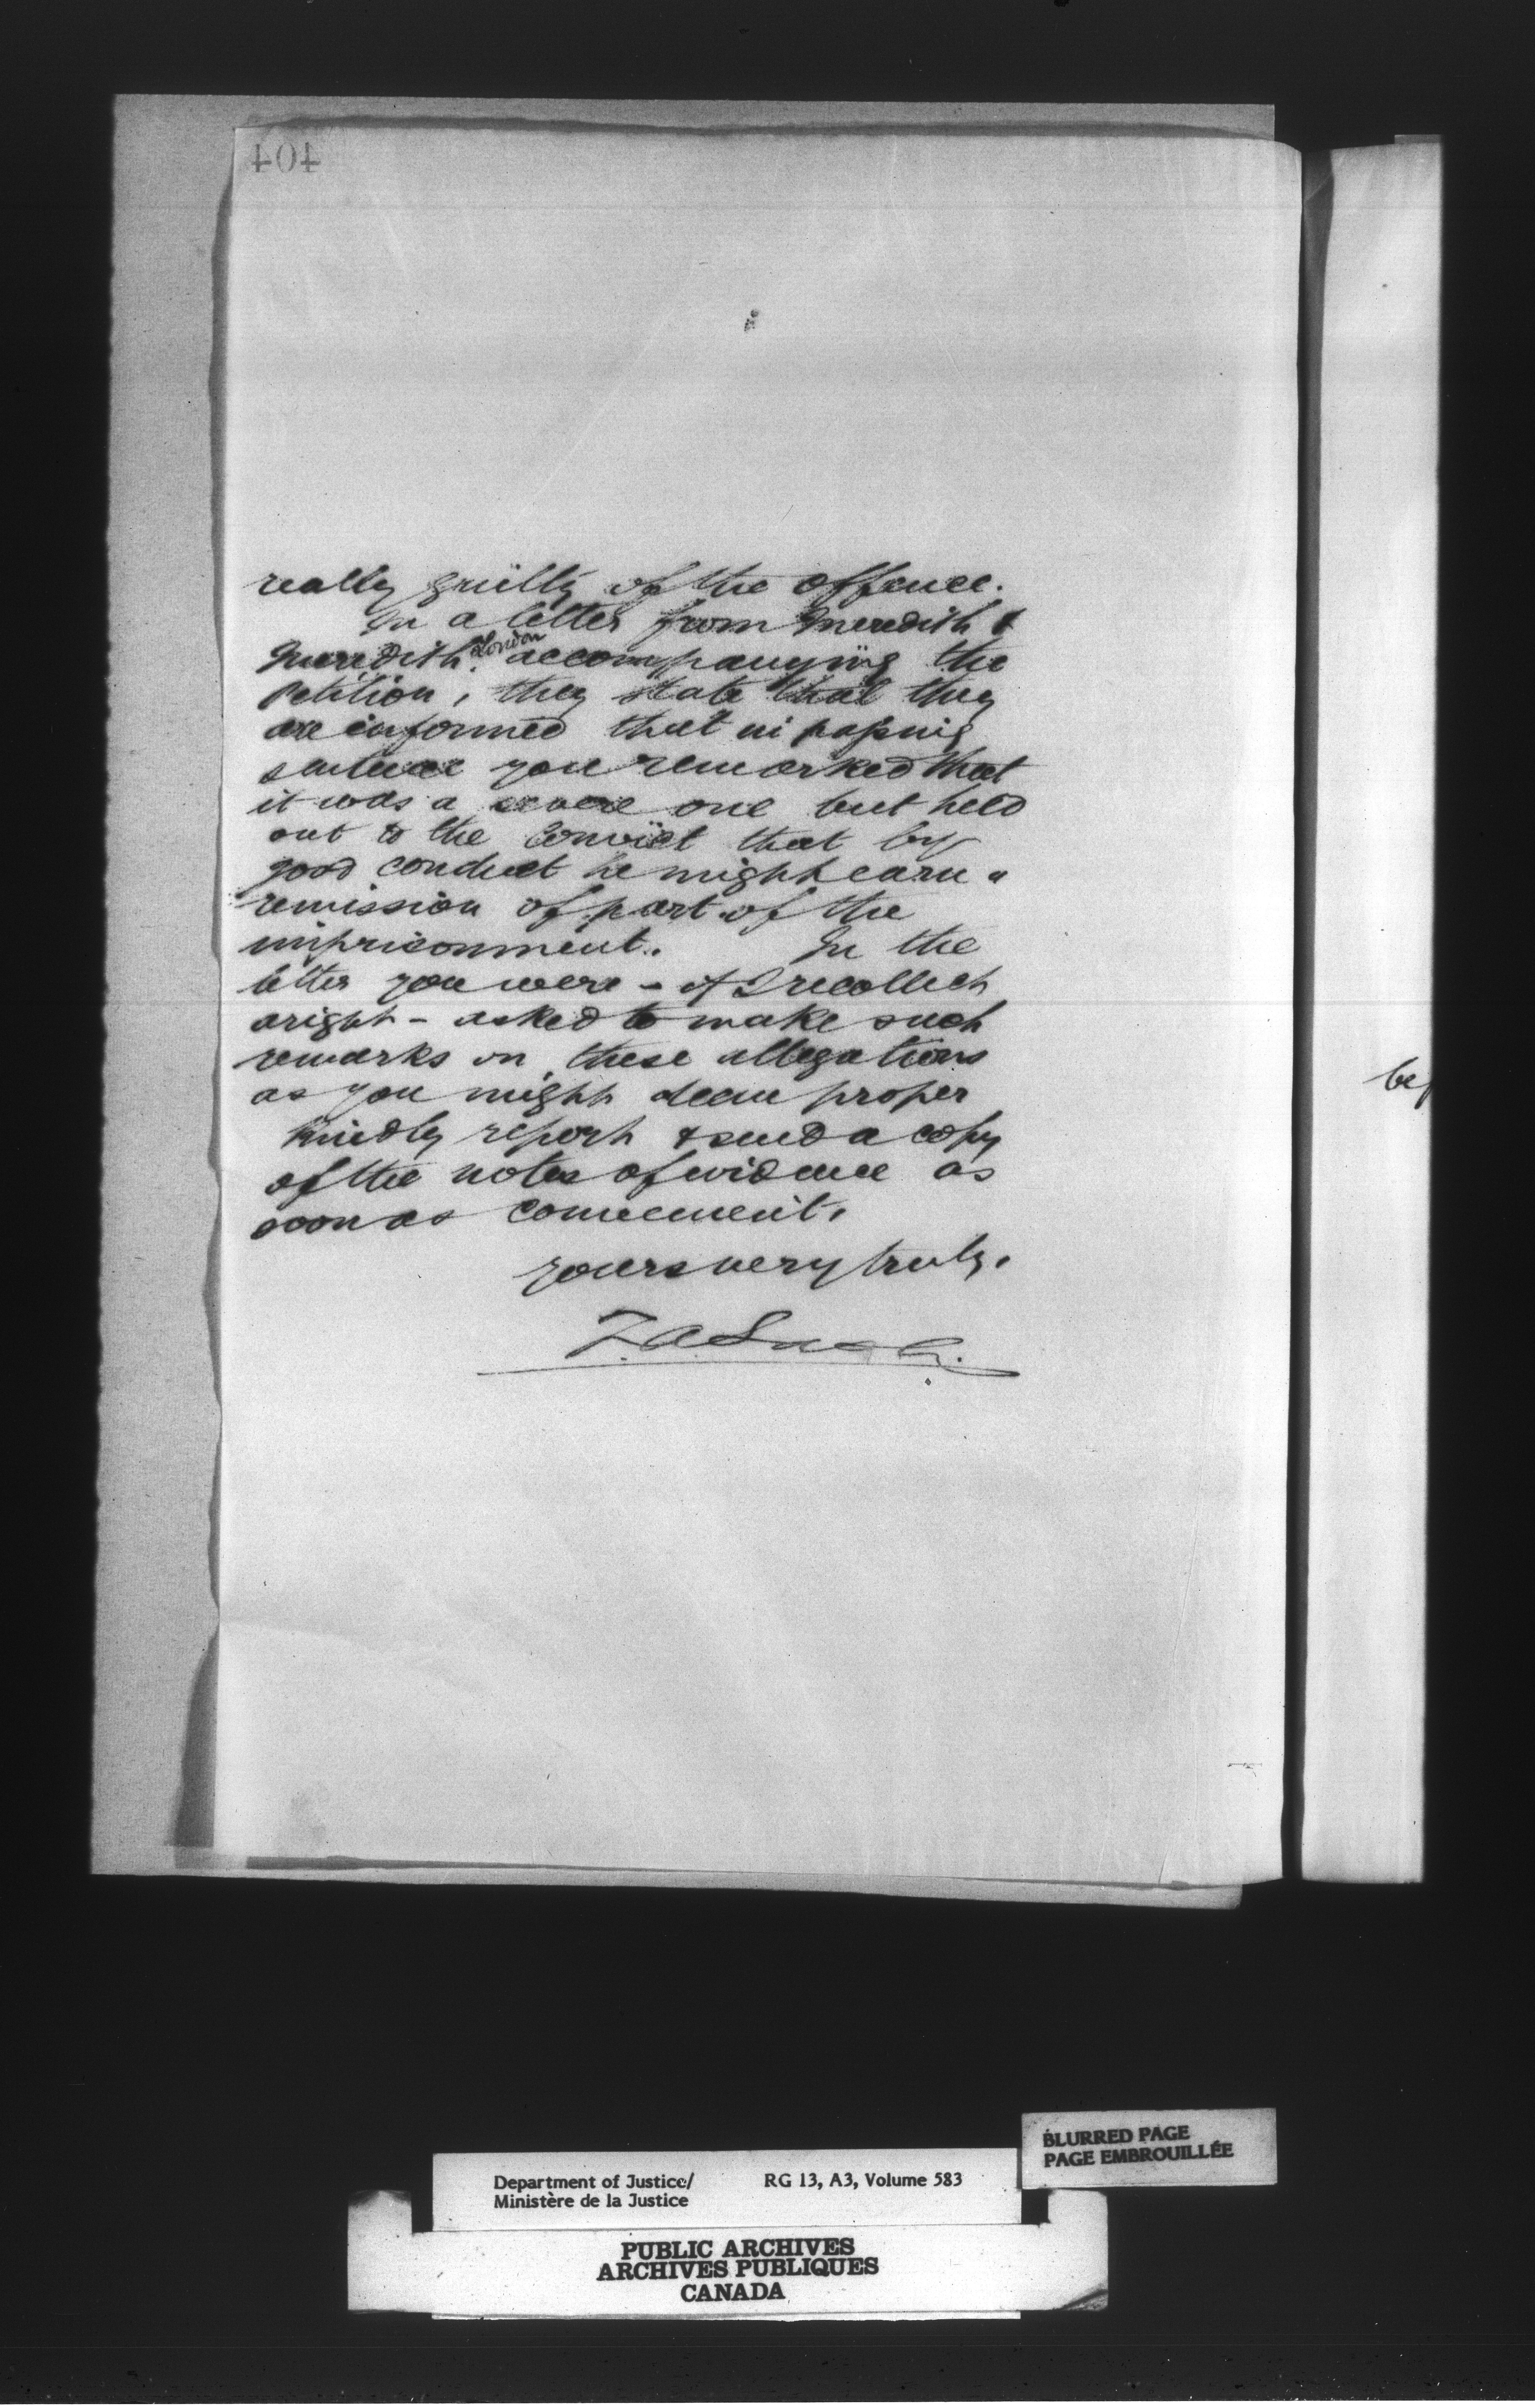 404
really guilty of the offence.
In a letter from Meredith &
Meredith London accompanying the
petition, they state that they
are informed that in passing
sentence you remarked that
it was a severe one but held
out to the convict that by
good conduct he might earn a
remission of part of the
imprisonment. In the
letter you were - if I recollect
aright - asked to make such
remarks on these allegations
as you might deem proper
Kindly report & send a copy
of the notes of evidence as
soon as convenient.
Yours very truly.
be
BLURRED PAGE
PAGE EMBROUILLÉE
Department of Justice/ RG 13, A3, Volume 583
Ministère de la Justice
PUBLIC ARCHIVES
ARCHIVES PUBLIQUES
CANADA